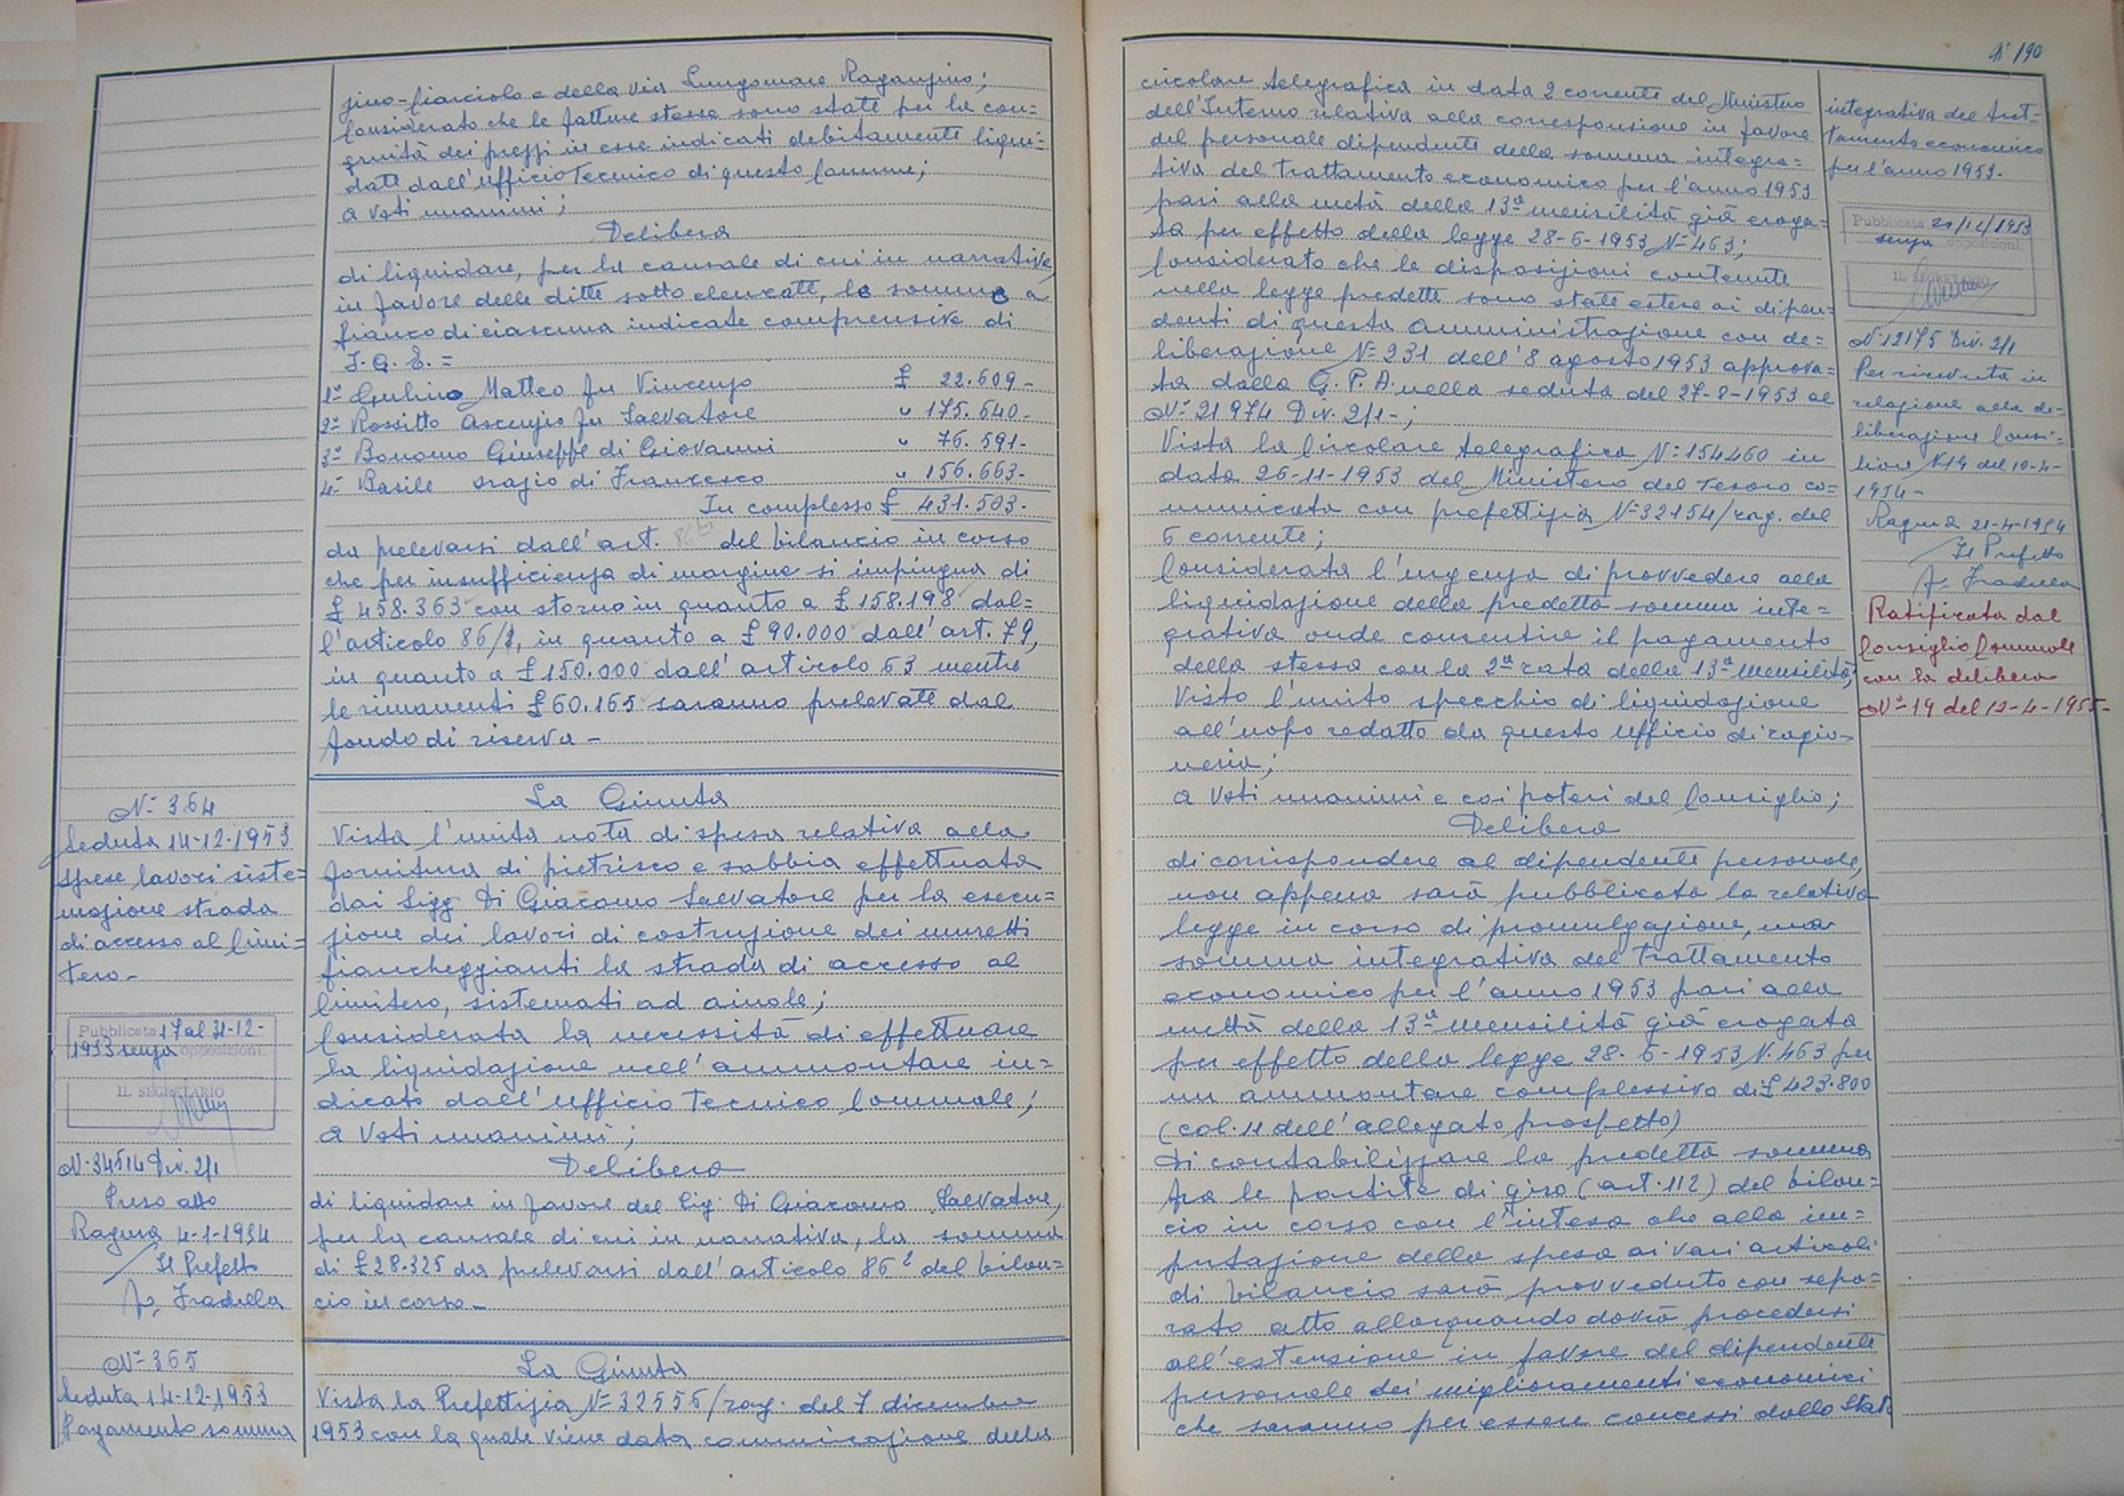 zino-Fiarciolo e della Via Lungomare Raganzino;
Considerato che le fatture stesse sono state per la con=
gruità dei prezzi in esse indicati debitamente liqui=
date dall'Ufficio Tecnico di questo Comune;
a voti unanimi;
Delibera
di liquidare, per la causale di cui in narrativa,
in favore delle ditte sotto elencate, le somme a
fianco di ciascuna indicate comprensive di
I.G.E. =
1º Matteo fu Vincenzo £ 22.609-
2º Rossitto Ascenzio fu Salvatore " 175.640-
3º Bonomo Giuseppe di Giovanni " 76.591-
4º Basile Orazio di Francesco " 156.663-
In complesso £ 431.503-
da prelevarsi dall'art. 86 bis del bilancio in corso
che per insufficienza di margine si impingua di
£ 458.363 con storno in quanto a £ 158.198 dal=
l'articolo 86/2, in quanto a £ 90.000 dall'art. 79,
in quanto a £ 150.000 dall'articolo 63 mentre
le rimanenti £ 60.165 saranno prelevate dal
fondo di riserva -
Nº 364
Seduta 14-12-1953
Spese lavori siste=
mazione strada
di accesso al Cimi=
tero-
Pubblicata 17 al 31-12-
1953 senza opposizioni.
IL SEGRETARIO
N. 34514 Div. 2/1
Preso atto
Ragusa 4-1-1954
Il Prefetto
f. Fradella
La Giunta
Vista l'unita nota di spesa relativa alla
fornitura di pietrisco e sabbia effettuata
dai Sigg. Di Giacomo Salvatore per la esecu=
zione dei lavori di costruzione dei muretti
fiancheggianti la strada di accesso al
Cimitero, sistemati ad aiuole;
Considerata la necessità di effettuare
la liquidazione nell'ammontare in=
dicato dall'Ufficio Tecnico Comunale;
a voti unanimi;
Delibera
di liquidare in favore del Sig. Di Giacomo Salvatore,
per la causale di cui in narrativa, la somma
di £ 28.325 da prelevarsi dall'articolo 86² del bilan=
cio in corso-
Nº 365
Seduta 14-12-1953
Pagamento somma
La Giunta
Vista la Prefettizia Nº 32556/rag. del 7 dicembre
1953 con la quale viene data comunicazione della
Nº 190
circolare telegrafica in data 2 corrente del Ministro
dell'Interno relativa alla corresponsione in favore
del personale dipendente della somma integra=
tiva del trattamento economico per l'anno 1953
pari alla metà della 13ª mensilità già eroga=
ta per effetto della legge 28-6-1953 Nº 463;
Considerato che le disposizioni contenute
nella legge predetta sono state estese ai dipen=
denti di questa Amministrazione con de=
liberazione Nº 231 dell'8 agosto 1953 approva=
ta dalla G.P.A. nella seduta del 27-8-1953 al
Nº 21974 Div. 2/1-;
Vista la Circolare telegrafica Nº 154460 in
data 26-11-1953 del Ministero del Tesoro co=
municata con prefettizia Nº 32154/rag. del
6 corrente;
Considerata l'urgenza di provvedere alla
liquidazione della predetta somma inte=
grativa onde consentire il pagamento
della stessa con la 2ª rata della 13ª mensilità;
Visto l'unito specchio di liquidazione
all'uopo redatto da questo Ufficio di ragio=
neria;
a voti unanimi e coi poteri del Consiglio;
Delibera
di corrispondere al dipendente personale,
non appena sarà pubblicata la relativa
legge in corso di promulgazione, una
somma integrativa del trattamento
economico per l'anno 1953 pari alla
metà della 13ª mensilità già erogata
per effetto della legge 28-6-1953 N. 463 per
un ammontare complessivo di £ 423.800
(col. 11 dell'allegato prospetto)
Di contabilizzare la predetta somma
fra le partite di giro (art. 112) del bilan=
cio in corso con l'intesa che alla im=
putazione della spesa ai vari articoli
di bilancio sarà provveduto con sepa=
rato atto allorquando dovrà procedersi
all'estensione in favore del dipendente
personale dei miglioramenti economici
che saranno per essere concessi dallo Stato
integrativa del trat=
tamento economico
per l'anno 1953-
Pubblicata 20/12/1953
senza opposizioni.
IL SEGRETARIO
Nº 12175 Div. 2/1
Per ricevuta in
relazione alla de=
liberazione Consi=
liare N. 19 del 12-4-
1954-
Ragusa 21-4-1954
Il Prefetto
f. Fradella
Ratificata dal
Consiglio Comunale
con la delibera
Nº 19 del 12-4-1955-